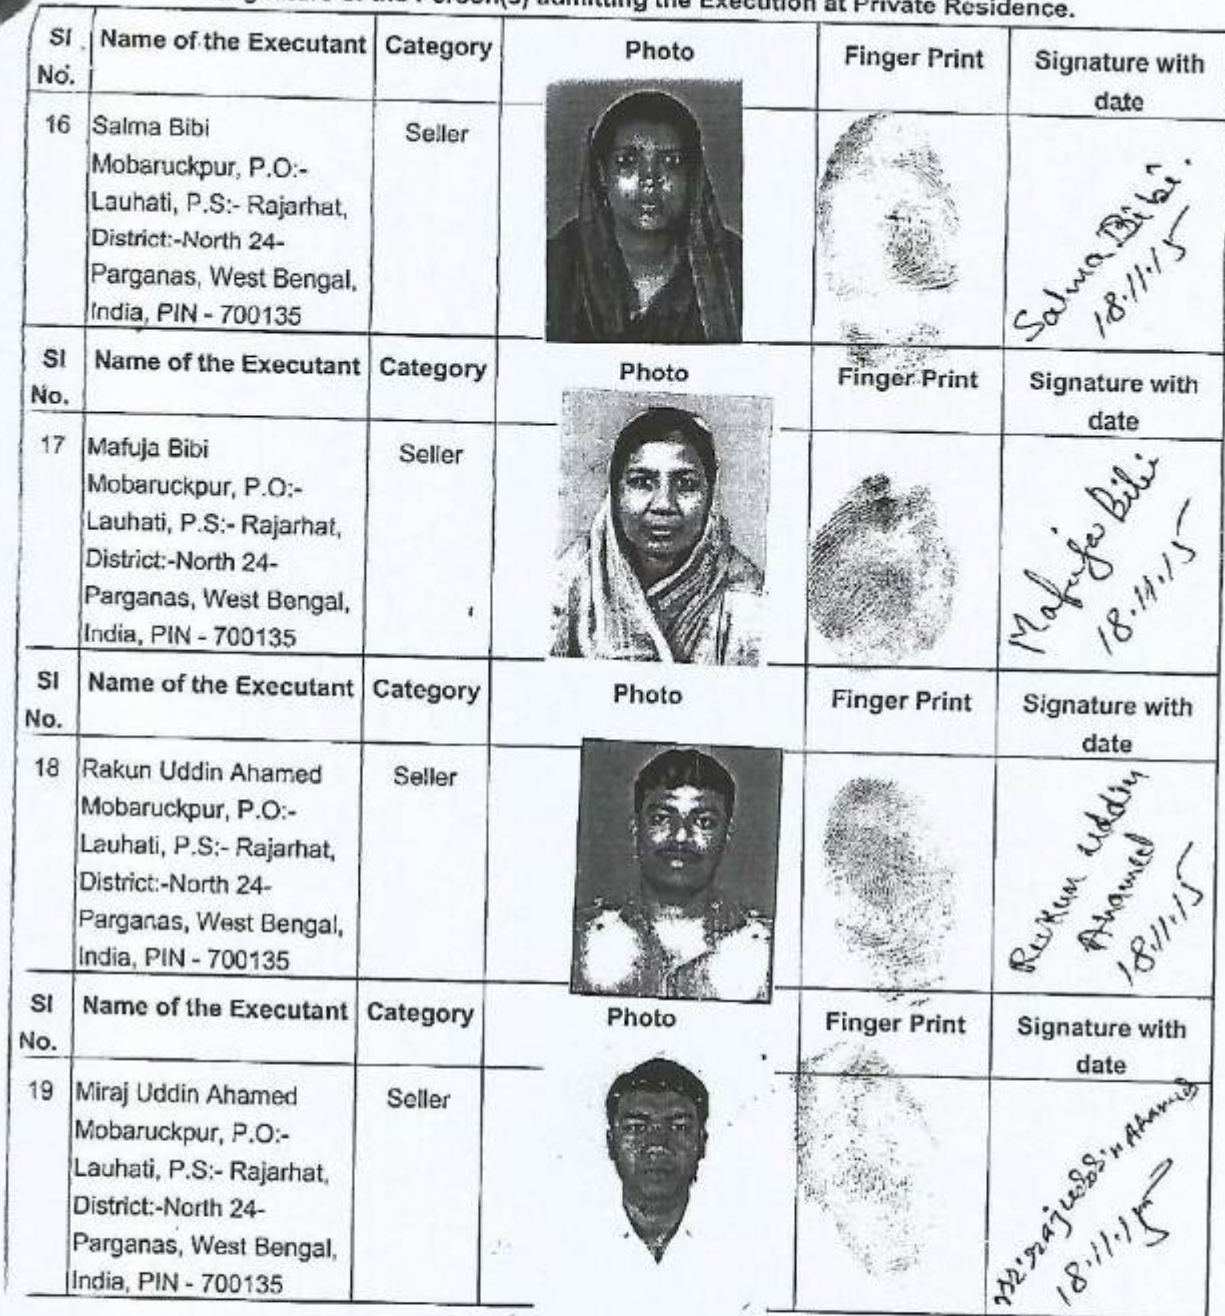 the Person(s) admitting the Execution at Private Residence.
Sl No. Name of the Executant Category Photo Finger Print Signature with date
16 Salma Bibi Seller
Mobaruckpur, P.O:-
Lauhati, P.S:- Rajarhat,
District:-North 24-
Parganas, West Bengal,
India, PIN - 700135
Salma Bibi.
18.11.15
Sl No. Name of the Executant Category Photo Finger Print Signature with date
17 Mafuja Bibi Seller
Mobaruckpur, P.O:-
Lauhati, P.S:- Rajarhat,
District:-North 24-
Parganas, West Bengal,
India, PIN - 700135
Mafuja Bibi
18.11.15
Sl No. Name of the Executant Category Photo Finger Print Signature with date
18 Rakun Uddin Ahamed Seller
Mobaruckpur, P.O:-
Lauhati, P.S:- Rajarhat,
District:-North 24-
Parganas, West Bengal,
India, PIN - 700135
Rakun Uddin
Ahamed
18.11.15
Sl No. Name of the Executant Category Photo Finger Print Signature with date
19 Miraj Uddin Ahamed Seller
Mobaruckpur, P.O:-
Lauhati, P.S:- Rajarhat,
District:-North 24-
Parganas, West Bengal,
India, PIN - 700135
Mirajuddin Ahamed
18.11.15